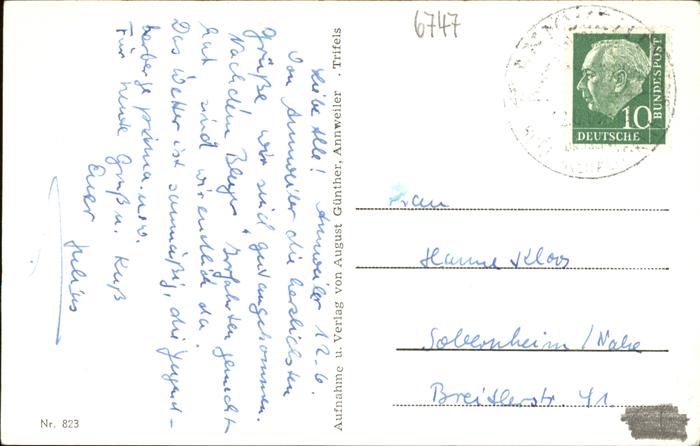 6747
Liebe Alle! Annweiler 12.6.
Von Annweiler die herzlichsten
Grüße, wir sind gut angekommen.
Nachdem Irrfahrten gemacht
hat sind wir endlich da.
Das Wetter ist , die Jugend-
herberge prima. u.s.w.
Für heute Gruß u. Kuß
Euer Julius
Aufnahme u. Verlag von August Günther, Annweiler . Trifels
Nr. 823
10
DEUTSCHE
BUNDESPOST
Frau
Hanne Kloos
Sobernheim / Nahe
Breitlerstr. 41.